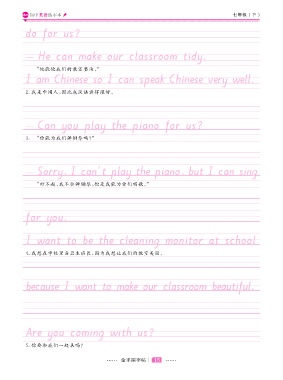 七年级（下）
do for us?
— He can make our classroom tidy.
"他能使我们的教室整洁。"
I am Chinese so I can speak Chinese very well.
2. 我是中国人，因此我汉语讲得很好。
— Can you play the piano for us?
3. "你能为我们弹钢琴吗？"
— Sorry, I can't play the piano, but I can sing
"对不起，我不会弹钢琴，但是我能为你们唱歌。"
for you.
I want to be the cleaning monitor at school
4. 我想在学校里当卫生班长，因为我想让我们的教室美丽。
because I want to make our classroom beautiful.
Are you coming with us?
5. 你要和我们一起来吗？
15